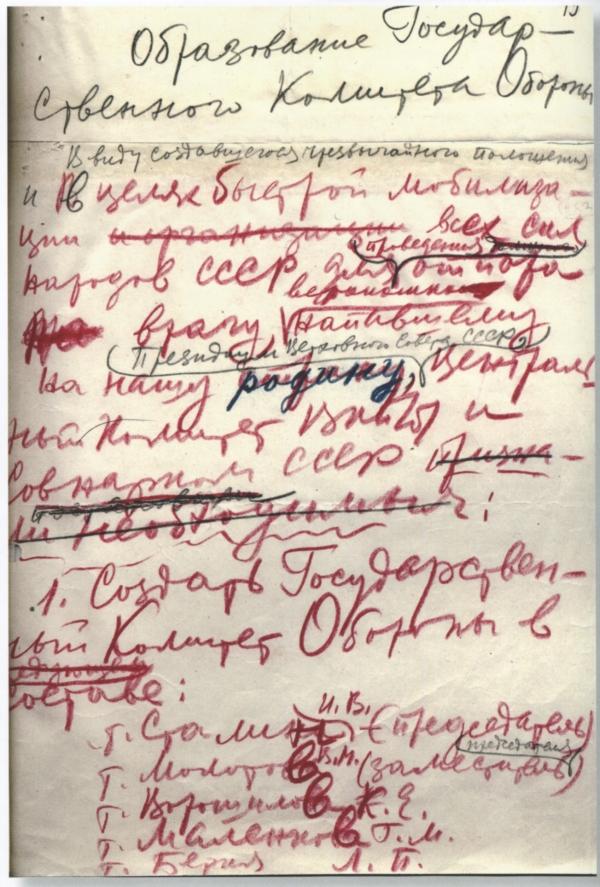 Образование Государ-
ственного Комитета Обороны
В виду создавшегося чрезвычайного положения
и В целях быстрой мобилиза-
ции и организации всех сил
проведения
народов СССР для отпора
врагу напавшему
Президиум Верховного Совета СССР,
на нашу родину, Централь
ный Комитет ВКП(б) и
Совнарком СССР призна-
ли необходимым:
1. Создать Государствен-
ный Комитет Обороны в
следующем
составе:
И. В.
т. Сталин (председатель)
председателя
т. Молотов В.М. (заместитель)
т. Ворошилов К. Е.
т. Маленков Г. М.
т. Берия Л. П.